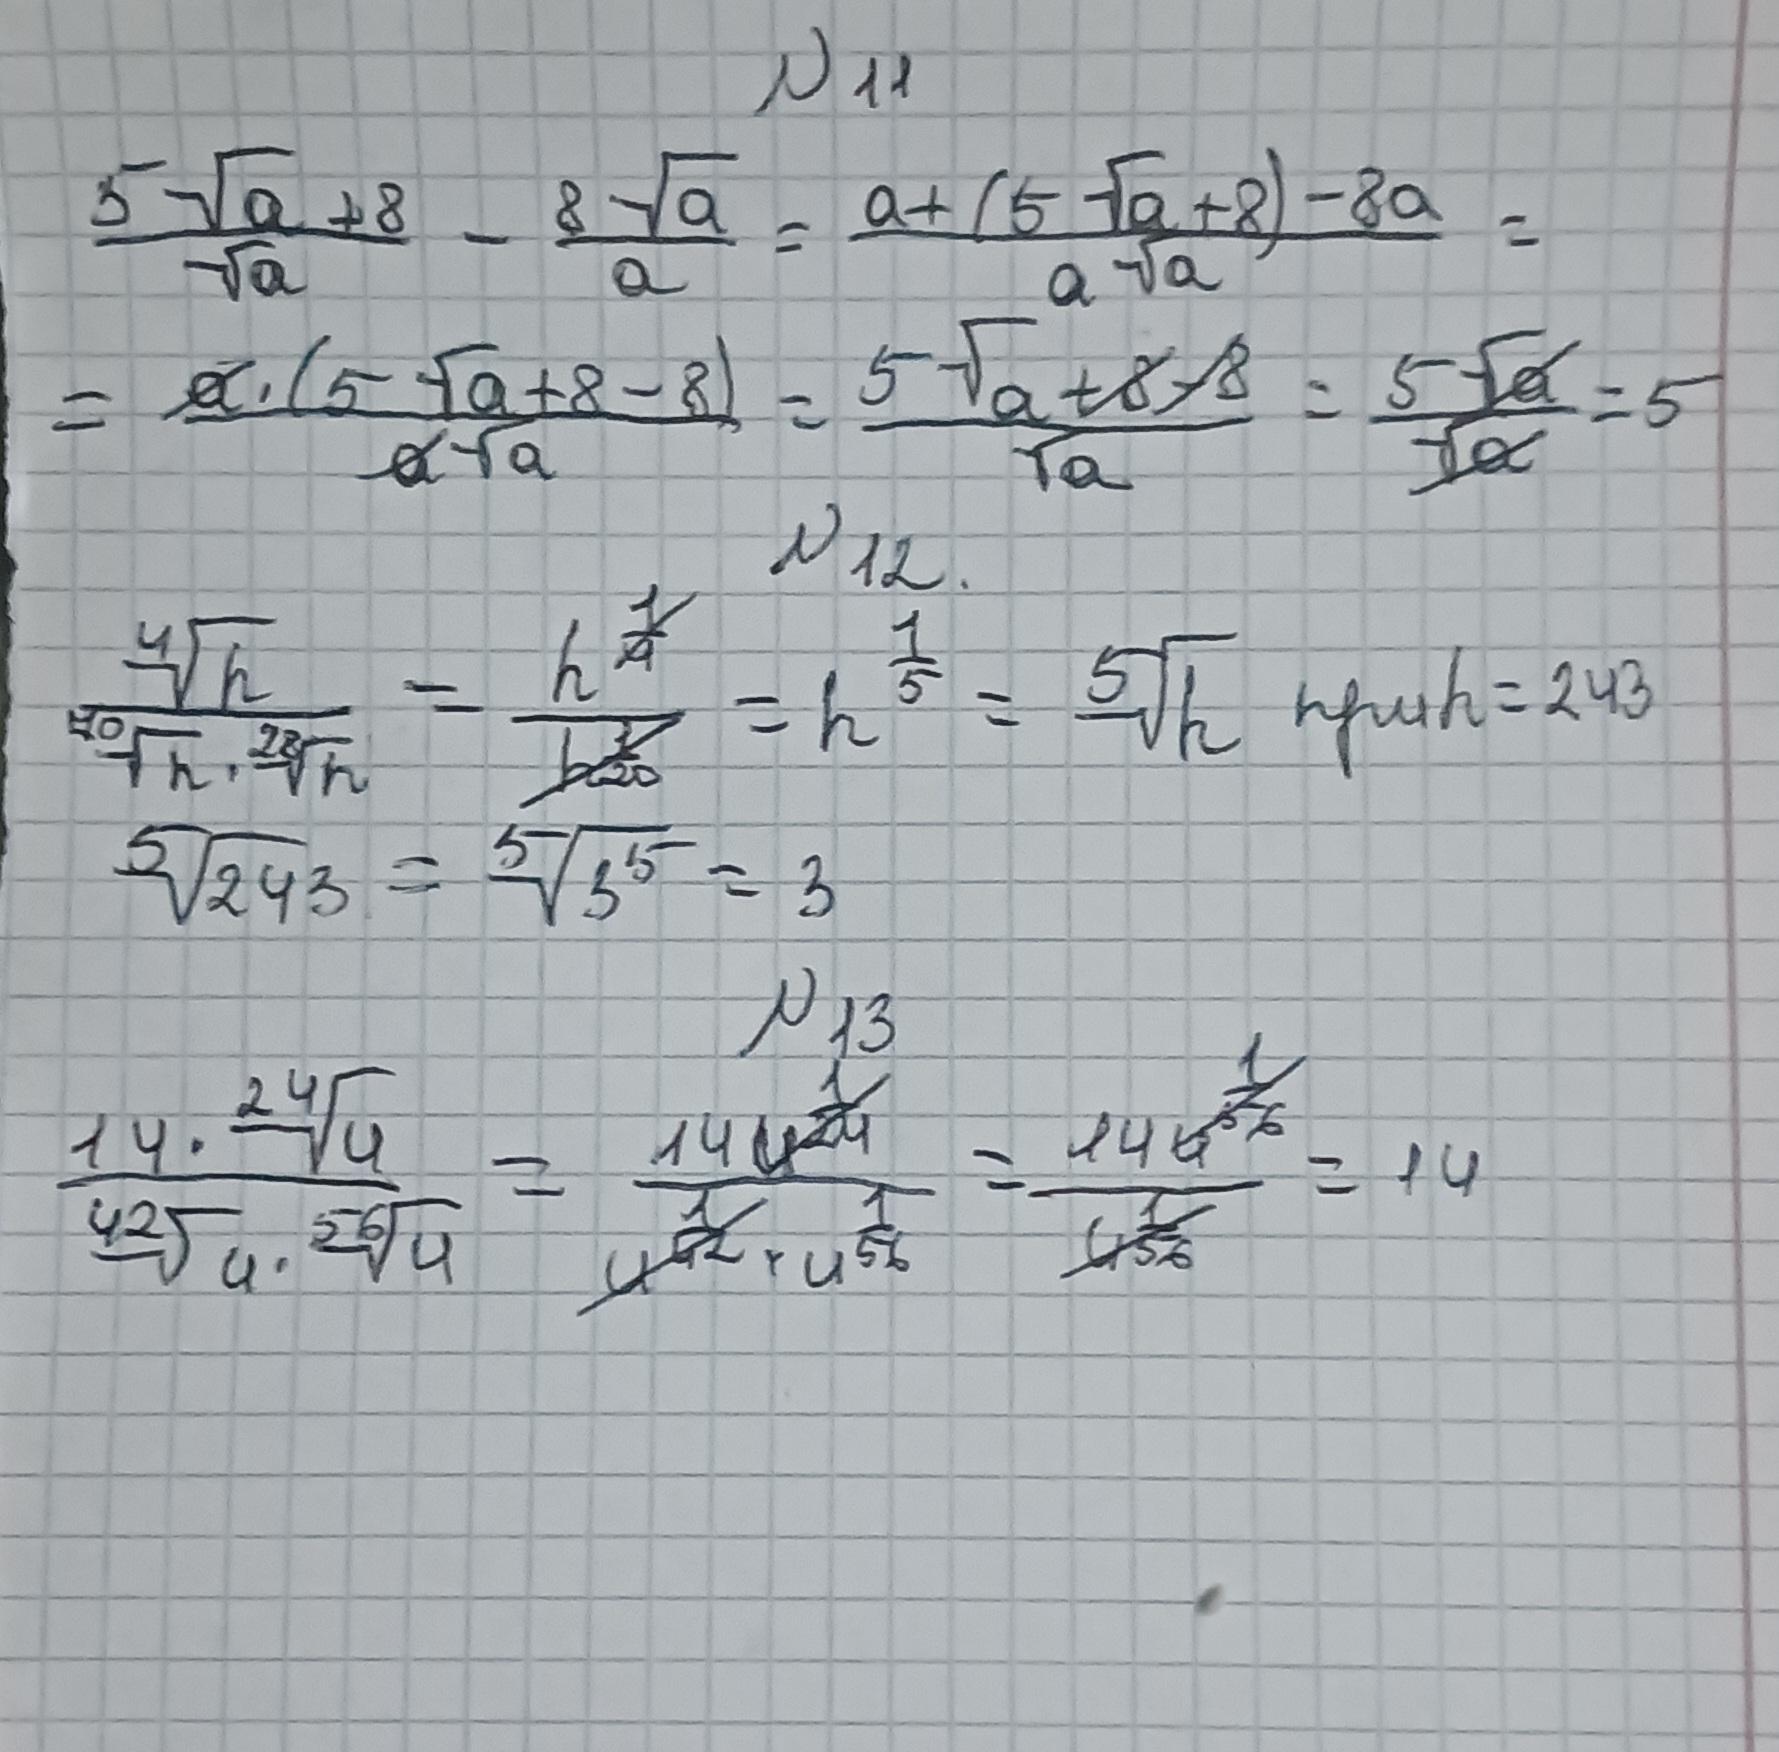 N 11
(5√a + 8)/√a - 8√a/a = (a + (5√a + 8) - 8a)/(a√a) =
= a·(5√a + 8 - 8)/(a√a) = (5√a + 8 - 8)/√a = 5√a/√a = 5
N 12.
⁴√h/(⁷⁰√h · ²⁸√h) = h^(1/4)/h^(1/20) = h^(1/5) = ⁵√h при h = 243
⁵√243 = ⁵√3⁵ = 3
N 13
14 · ²⁴√4/(⁴²√4 · ⁵⁶√4) = 14 4^(1/24)/(4^(1/42) · 4^(1/56)) = 14 4^(1/56)/4^(1/56) = 14